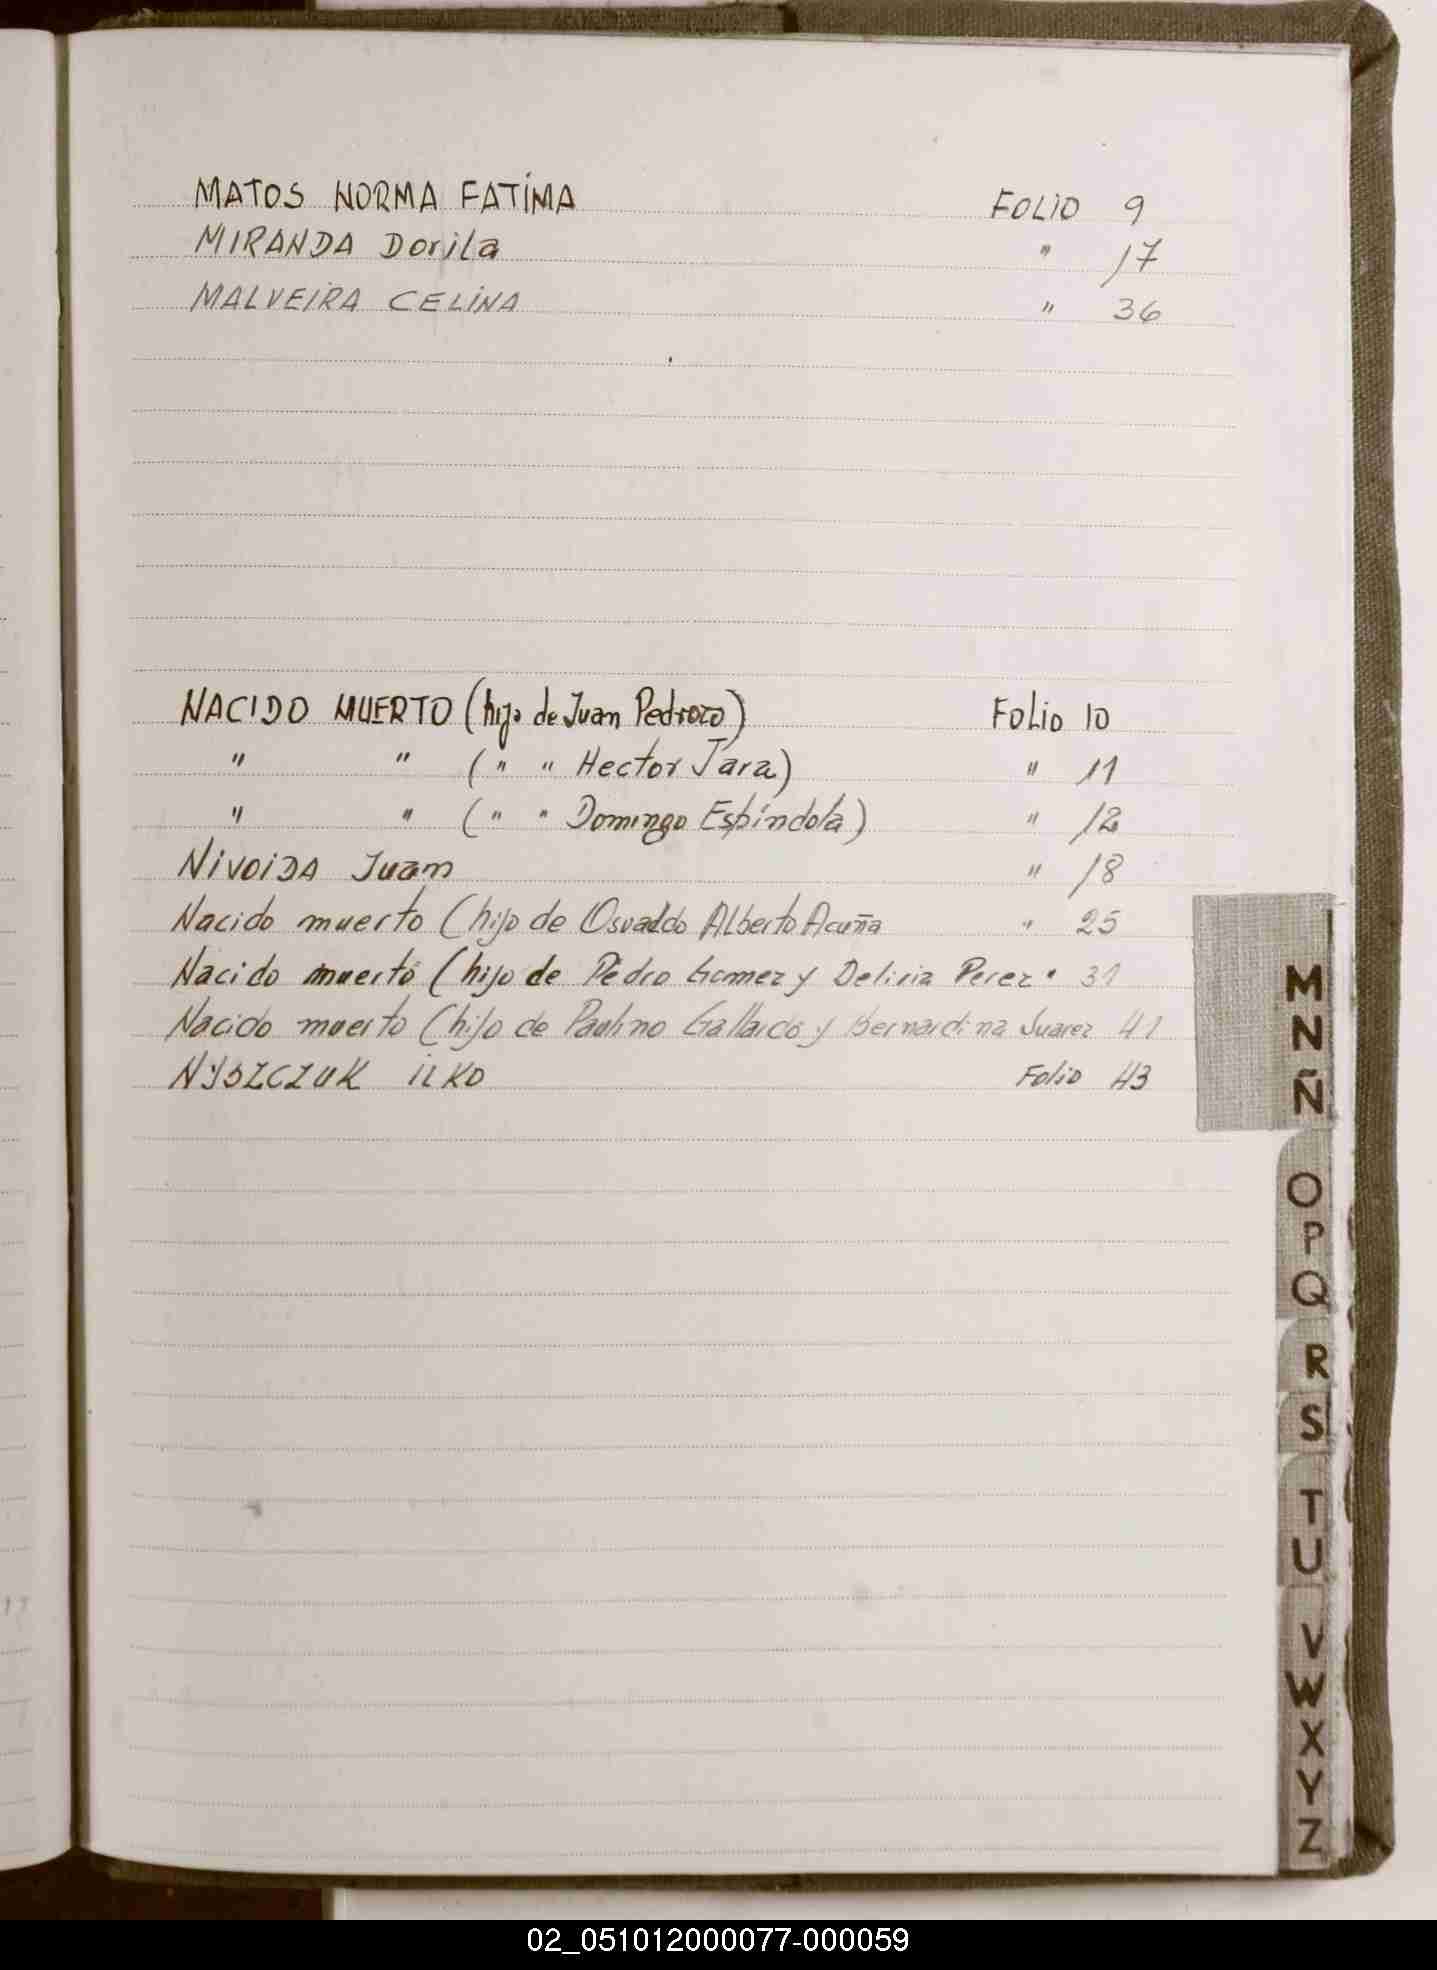 MATOS NORMA FATÍMA FOLIO 9
MIRANDA Dorila " 17
MALVEIRA CELINA " 36
NACIDO MUERTO (hijo de Juan Pedrozo) FOLIO 10
" " (" " Hector Jara) " 11
" " (" " Domingo Espíndola) " 12
NIVOIDA Juan " 18
Nacido muerto (hijo de Osvaldo Alberto Acuña " 25
Nacido muerto (hijo de Pedro Gomez y Deliria Perez " 31
Nacido muerto (hijo de Paulino Gallardo y Bernardina Suarez 41
NYSZCZUK ILKO Folio 43
M
N
Ñ
O
P
Q
R
S
T
U
V
W
X
Y
Z
02_051012000077-000059